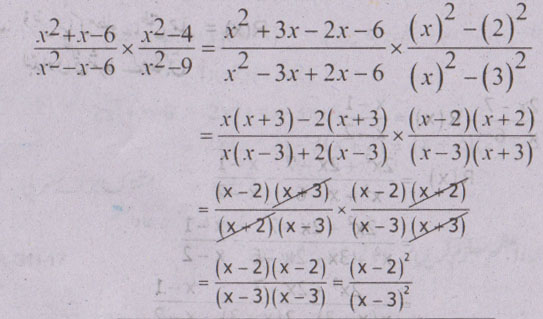 \frac{x^2+x-6}{x^2-x-6} × \frac{x^2-4}{x^2-9} = \frac{x^2+3x-2x-6}{x^2-3x+2x-6} × \frac{(x)^2-(2)^2}{(x)^2-(3)^2}
= \frac{x(x+3)-2(x+3)}{x(x-3)+2(x-3)} × \frac{(x-2)(x+2)}{(x-3)(x+3)}
= \frac{(x-2)(x+3)}{(x+2)(x-3)} × \frac{(x-2)(x+2)}{(x-3)(x+3)}
= \frac{(x-2)(x-2)}{(x-3)(x-3)} = \frac{(x-2)^2}{(x-3)^2}